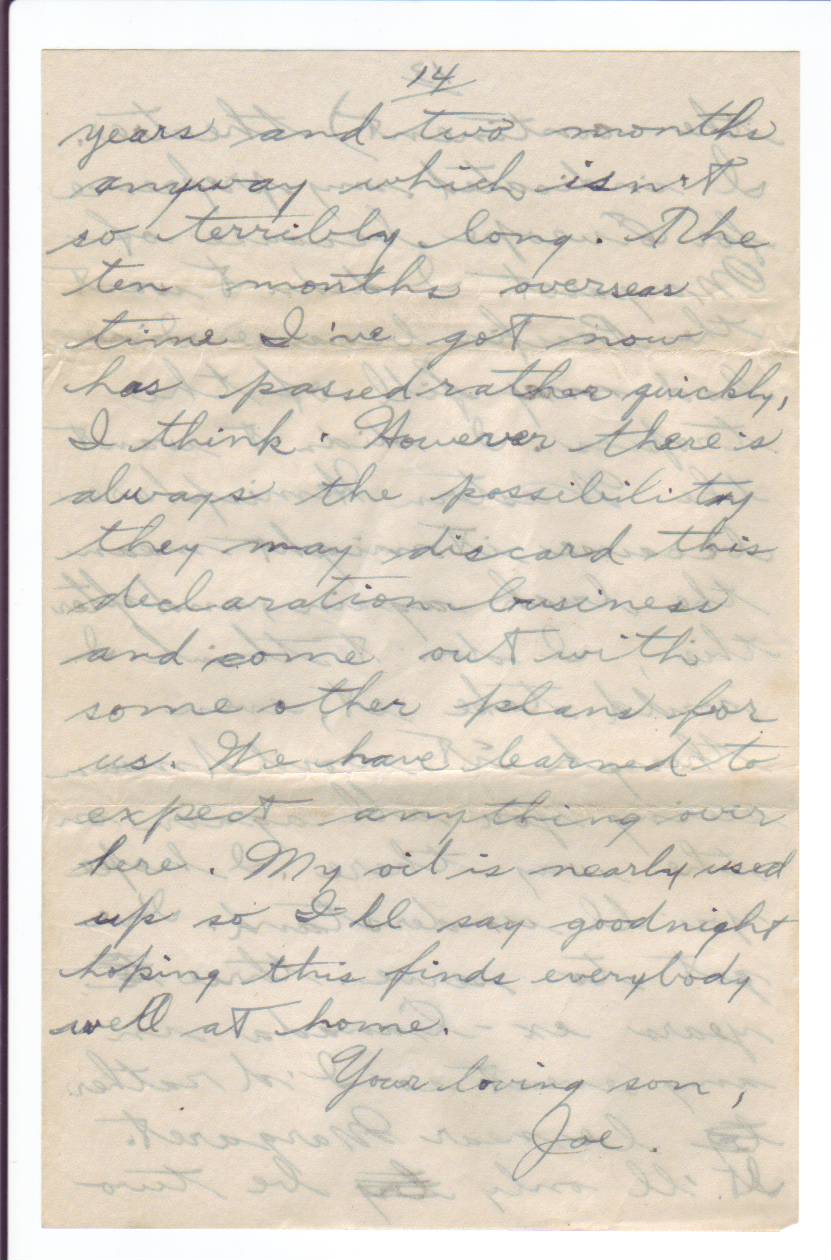 14
years and two months
anyway which isn't
so terribly long. The
ten months overseas
time I've got now
has passed rather quickly,
I think. However there's
always the possibility
they may discard this
declaration business
and come out with
some other plans for
us. We have learned to
expect anything over
here. My oil is nearly used
up so I'll say goodnight
hoping this finds everybody
well at home.
Your loving son,
Joe.